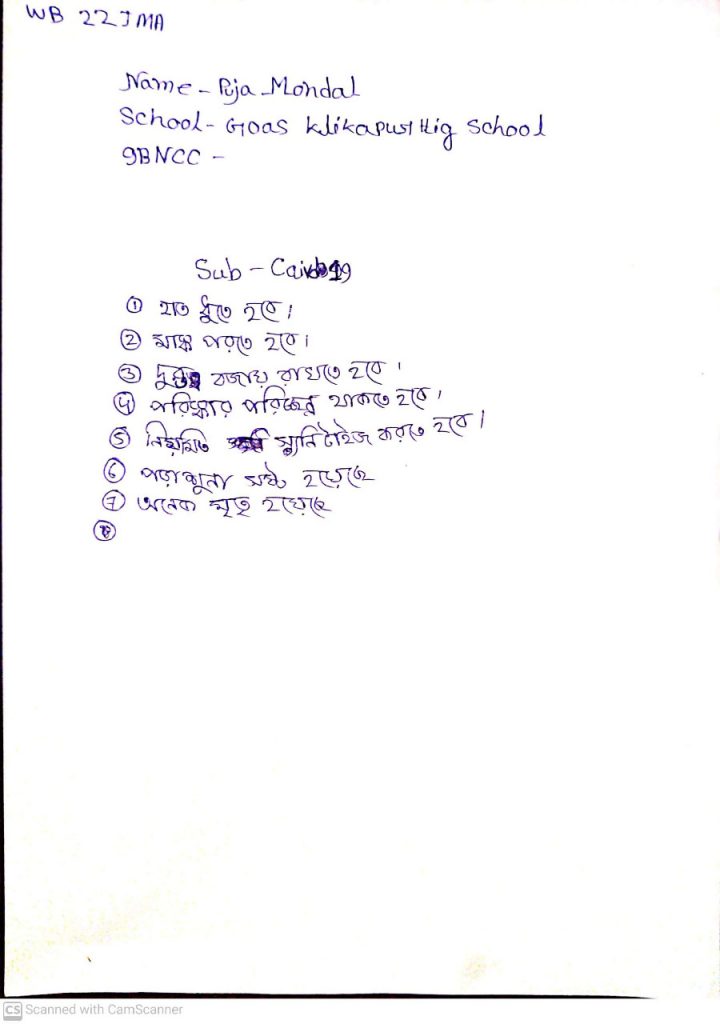 WB 22JMA
Name - Puja Mondal
School - Goas Klikapur Hig School
9BNCC -
Sub - Caivd19
① হাত ধুঁতে হবে।
② মাস্ক পরতে হবে।
③ দুরত্ব বজায় রাখতে হবে।
④ পরিস্কার পরিচ্ছন্ন থাকতে হবে।
⑤ নিয়মিত স্যানিটাইজ করতে হবে।
⑥ পড়াশুনা নষ্ট হয়েছে
⑦ অনেক মৃত্যু হয়েছে
⑧
CS Scanned with CamScanner